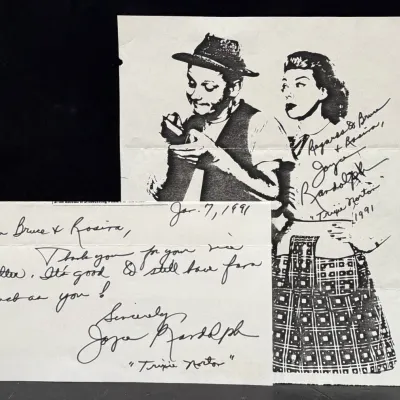 Regards to Bruce
& Rosina,
Joyce
Randolph
"Trixie Norton"
1991
Jan. 7, 1991
Bruce & Rosina,
Thank you for your nice
It's good to still have fans
as you!
Sincerely,
Joyce Randolph
"Trixie Norton"